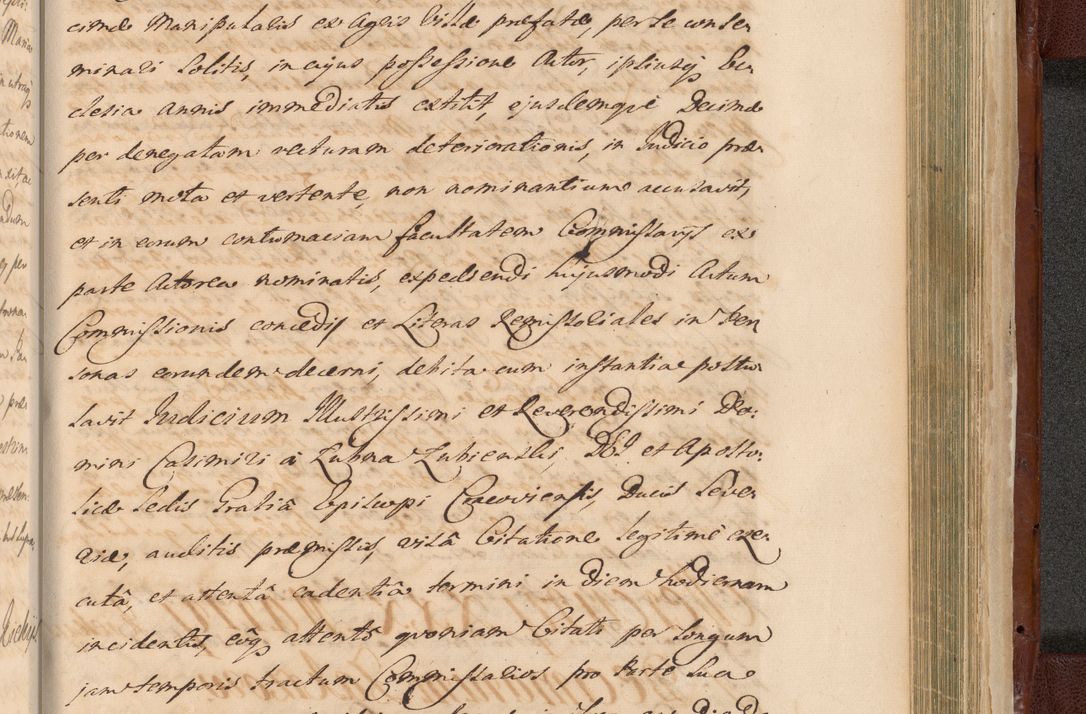 cimæ Manipulalis ex Agris Villæ præfatæ, per se conse-
minari Solitis, in cujus possessione Actor, ipsiusq Ec-
clesia annis immediatis extitit, ejusdemque Decimæ
per denegatam vecturam deteriorationis, in Judicio præ-
senti mota et vertente, non nominantium accusavit,
et in eorum contumaciam facultatem Commissarijs ex
parte Actorea nominatis, expediendi hujusmodi Actum
Commissionis concedi, et Literas Remissoriales in Per-
sonas eorundem decerni, debita cum instantia postu-
lavit Judicium Illustrissimi et Reverendissimi Do-
mini Casimiri à Łubna Łubienski, Dei et Aposto-
licæ Sedis Gratiâ Episcopi Cracoviensis, Ducis Seve-
riæ, auditis præmissis, visâ Citatione legitimè exe-
cutâ, et attentâ cadentiâ termini in diem hodiernam
incidentis, eoq attento quoniam Citati per longum
jam temporis tractum Commissarios pro Parte Sua